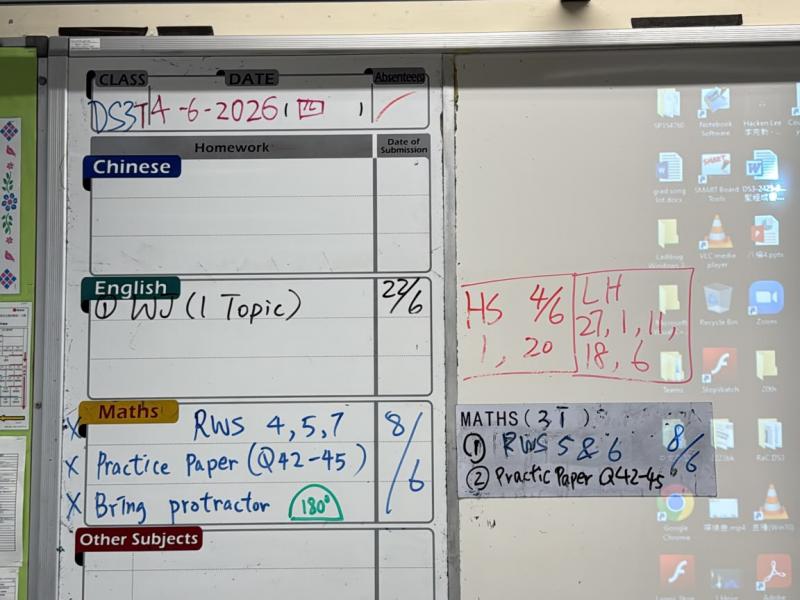 CLASS DATE Absentees
DS3T 4-6-2026 (四)
Homework Date of Submission
Chinese
English
① WJ (1 Topic) 22/6
Maths
X RWS 4, 5, 7 8/6
X Practice Paper (Q42-45)
X Bring protractor 180°
Other Subjects
HS 4/6
1, 20
LH
27, 1, 11,
18, 6
MATHS (3T)
① RWS 5 & 6 8/6
② Practic Paper Q42-45
SP154760
Notebook Software
Hacken Lee
grad song list.docx
SMART Board Tools
Ladybug
VLC media player
Recycle Bin
Zoom
Teams
StepWatch
20th
RaC DS3
Google Chrome